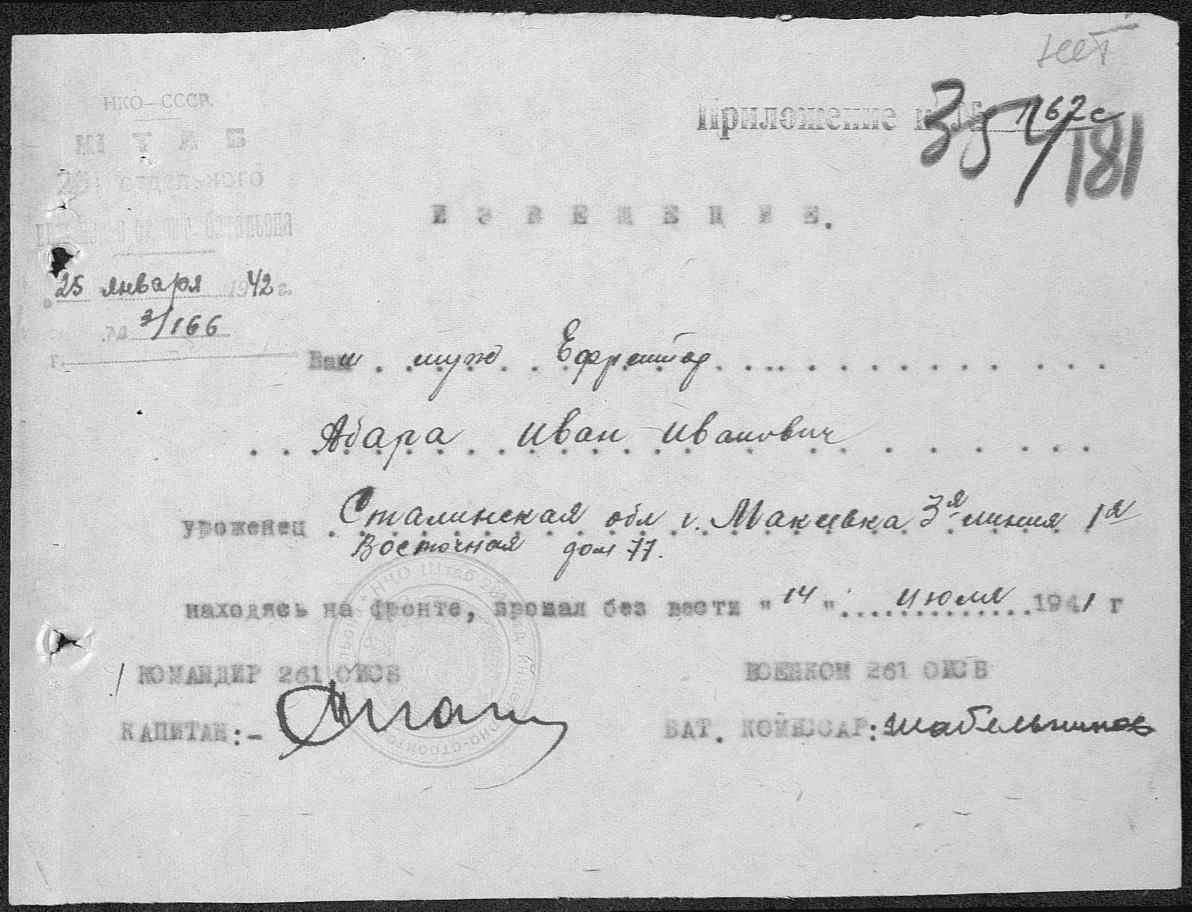 нет
НКО–СССР.
ШТАБ
261 отдельного
батальона
Приложение к № 1162с
35
181
ИЗВЕЩЕНИЕ.
25 января 1942 г.
№ 3/166
Ваш муж Ефрейтор
Абара Иван Иванович
уроженец Сталинская обл г. Макеевка 3я линия 1я
Восточная дом 77.
находясь на фронте, пропал без вести "14" июля 1941 г
КОМАНДИР 261 ОИСБ ВОЕНКОМ 261 ОИСБ
КАПИТАН:- БАТ. КОМИССАР: Шабельников